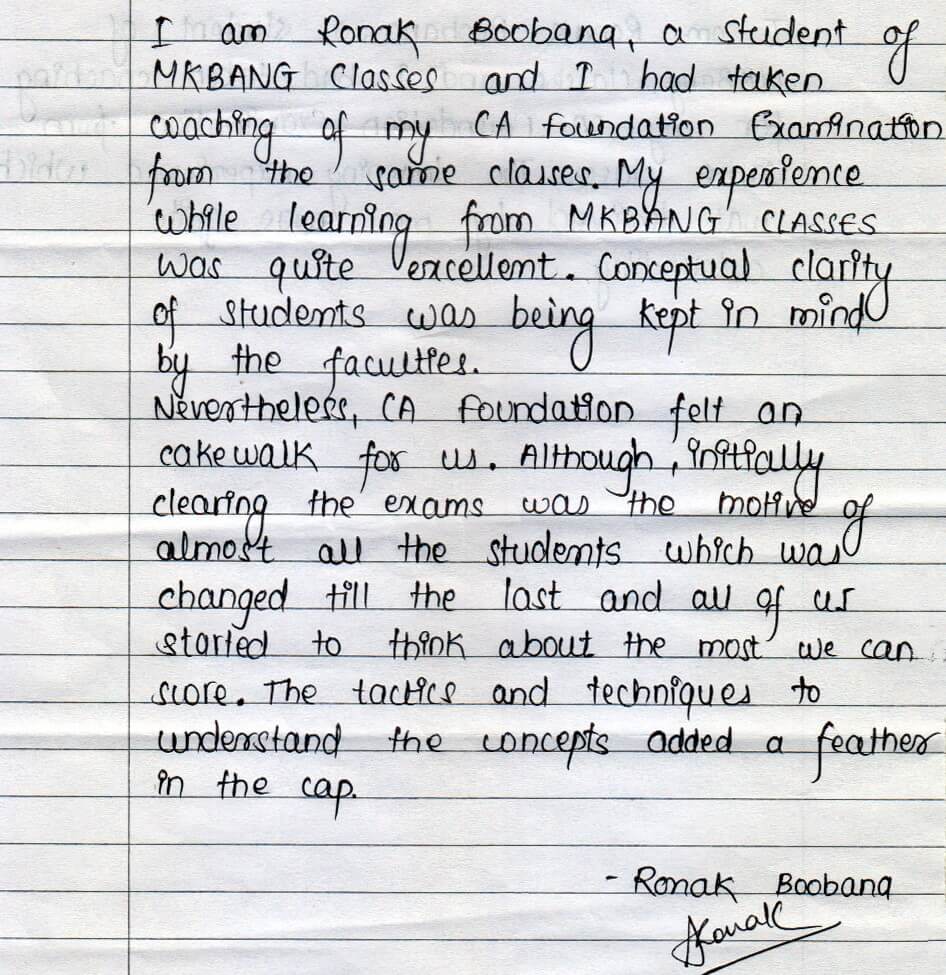 I am Ronak Boobana, a student of
MKBANG Classes and I had taken
coaching of my CA foundation Examination
from the same classes. My experience
while learning from MKBANG CLASSES
was quite excellent. Conceptual clarity
of students was being kept in mind
by the faculties.
Nevertheless, CA foundation felt an
cakewalk for us. Although, initially
clearing the exams was the motive of
almost all the students which was
changed till the last and all of us
started to think about the most we can
score. The tactics and techniques to
understand the concepts added a feather
in the cap.
- Ronak Boobana
Ronak